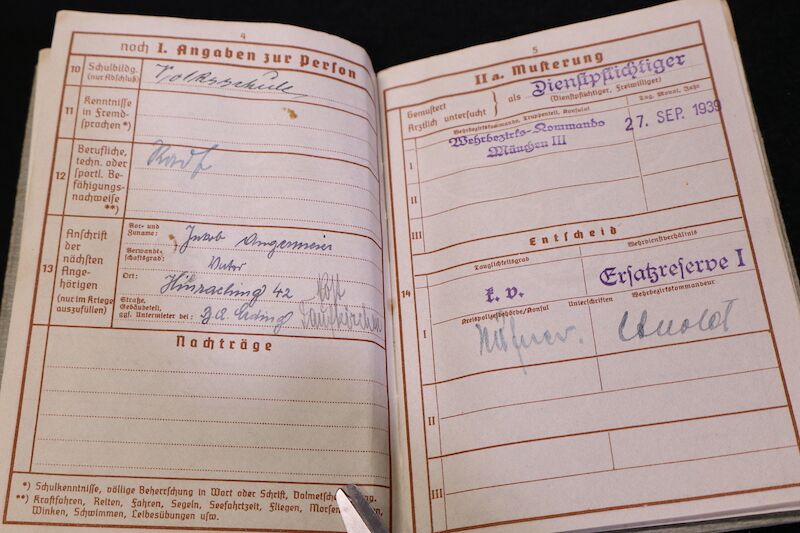 4
noch I. Angaben zur Person
10
Schulbildg.
(nur Abschluß)
Volksschule
11
Kenntnisse
in Fremd-
sprachen *)
12
Berufliche,
techn. oder
sportl. Be-
fähigungs-
nachweise
**)
Radf
13
Anschrift
der
nächsten
Ange-
hörigen
(nur im Kriege
auszufüllen)
Vor- und
Zuname:
Jakob Angermeier
Verwandt-
schaftsgrad:
Vater
Ort:
Hinraching 42
Straße,
Gebäudeteil,
ggf. Untermieter bei:
B.A. Erding
Post
Taufkirchen
Nachträge
*) Schulkenntnisse, völlige Beherrschung in Wort oder Schrift,
**) Kraftfahren, Reiten, Fahren, Segeln, Seefahrtzeit, Fliegen,
Winken, Schwimmen, Leibesübungen usw.
5
II a. Musterung
Gemustert
Ärztlich untersucht
} als
Dienstpflichtiger
(Dienstpflichtiger, Freiwilliger)
Wehrbezirkskommando, Truppenteil, Konsulat
Tag, Monat, Jahr
I
Wehrbezirks-Kommando
München III
27. SEP. 1939
II
III
Entscheid
Tauglichkeitsgrad
Wehrdienstverhältnis
14
k. v.
Ersatzreserve I
Kreispolizeibehörde/Konsul
Unterschriften
Wehrbezirkskommandeur
I
Arnold
II
III